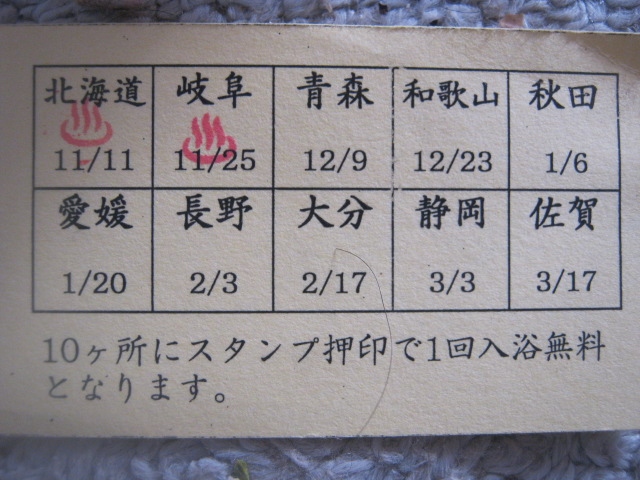 北海道 岐阜 青森 和歌山 秋田
11/11 11/25 12/9 12/23 1/6
愛媛 長野 大分 静岡 佐賀
1/20 2/3 2/17 3/3 3/17
10ヶ所にスタンプ押印で1回入浴無料
となります。